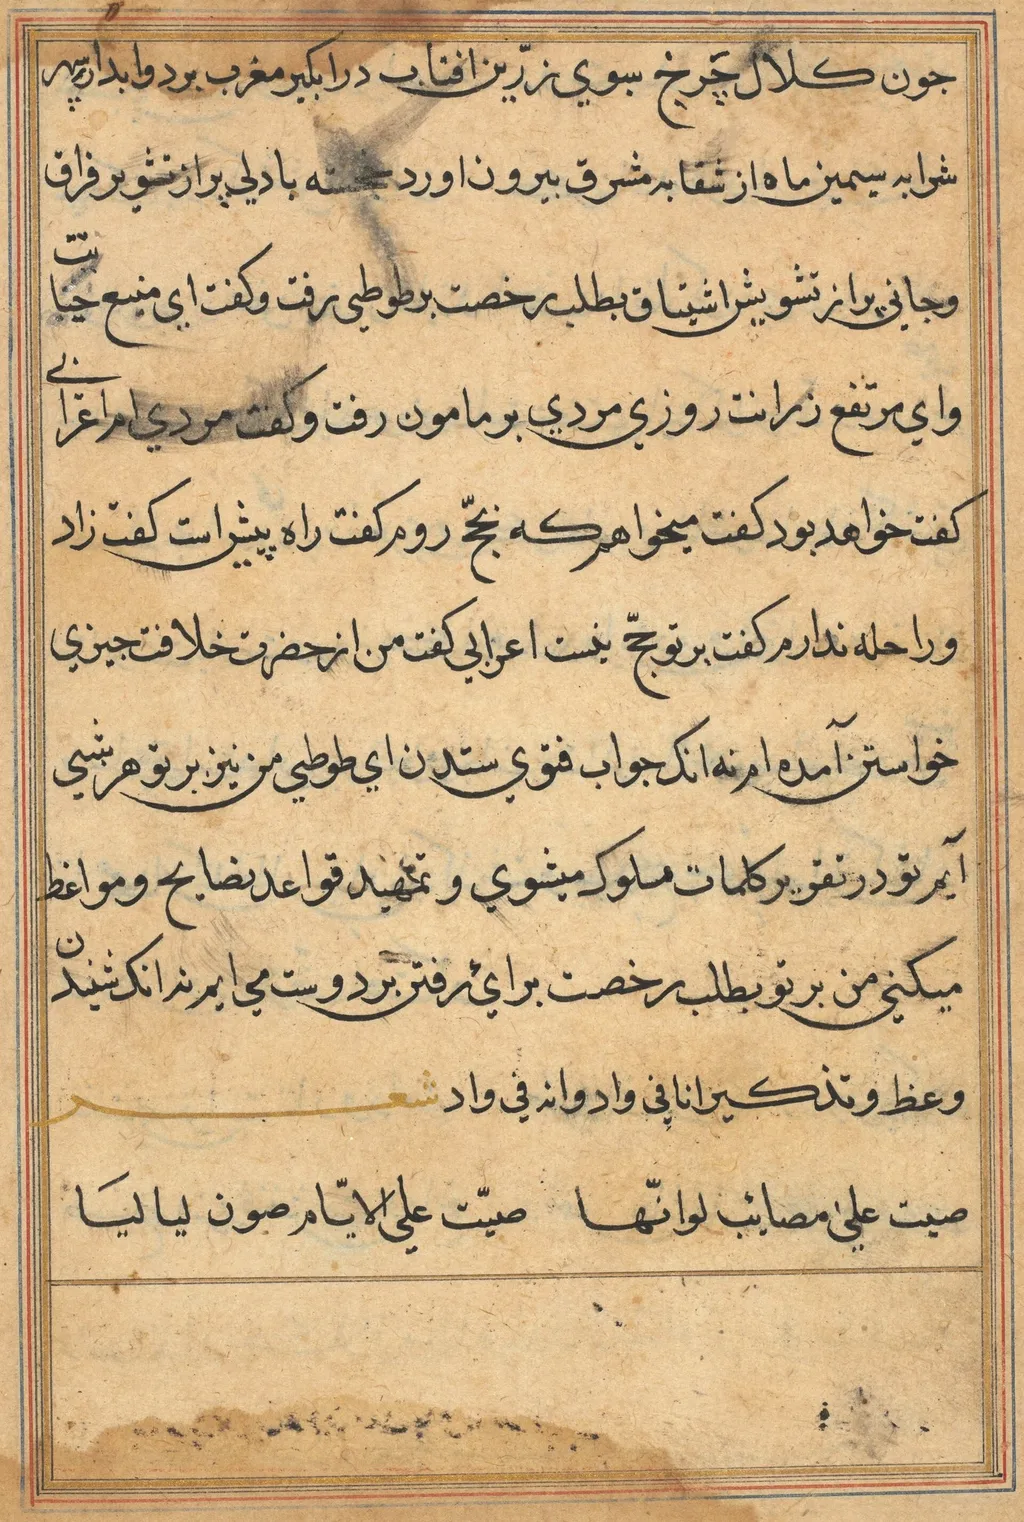 جون کلال چرخ سبوي زرّین افتاب درابکیر مغرب برد وابدار سپهر
شرابه سیمین ماه از شقابه مشرق بیرون اورد خجسته بادلي پراز تشویر فراق
وجاني پراز تشویش اشتیاق بطلب رخصت برطوطي رفت وکفت اي منبع جنابت
واي مرتفع زرانت روزي مردي بر مامون رفت وکفت مردي ام اعرابي
کفت خواهد بود کفت میخواهم که بحجّ روم کفت راه پیش است کفت زاد
وراحله ندارم کفت برتو حجّ نیست اعرابي کفت من از حضرت خلافت جیزي
خواستن آمده ام نه انک جواب فتوي ستدن اي طوطي من نیز برتو هر شبي
آیم تو در تقویر کلمات ملوک میشوي و تمهید قواعد نصایح ومواعظ
میکني من بر تو بطلب رخصت براي رفتن بر دوست مي ایم نه انک شنیدن
وعظ وتذکیر انا في واد وانه في واد شعر
صبت علي مصایب لوانّها صبّت علي الایّام صون لیالیا